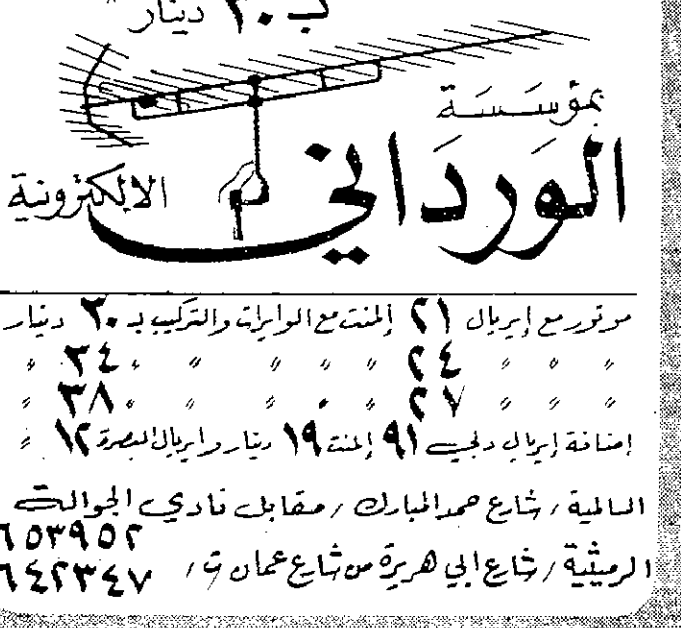 بـ ٣٠ دينار
بمؤسسة
الورداني
الالكترونية
موتور مع إيريال ٢١ إلمنت مع الوايرات والتركيب بـ ٣٠ دينار
〃 〃 〃 ٢٤ 〃 〃 〃 〃 〃 ٣٤ 〃
〃 〃 〃 ٢٧ 〃 〃 〃 〃 〃 ٣٨ 〃
إضافة إيريال دبي ٩١ إلمنت ١٩ دينار وايريال البصرة ١٢ 〃
السالمية / شارع حمد المبارك / مقابل نادي الجوالة
٦٥٣٩٥٢
الرميثية / شارع ابي هريرة من شارع عمان ت /
٦٤٢٣٤٧